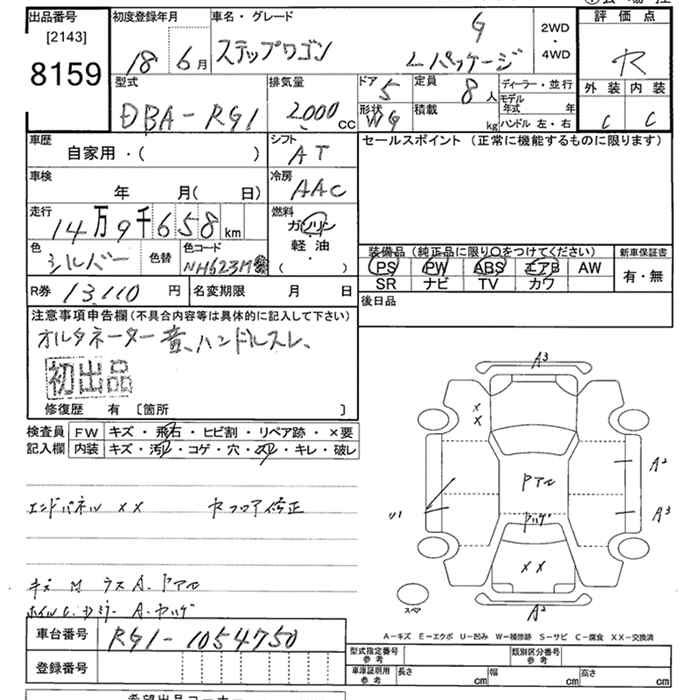 出品番号
[2143]
8159
初度登録年月
18 6月
車名・グレード
ステップワゴン
G
Lパッケージ
2WD
・
4WD
評価点
R
外装 内装
C C
型式
DBA-RG1
排気量
2000 CC
ドア 5
定員 8人
形状 WG
積載 kg
ディーラー・並行
モデル年式 年
ハンドル 左・右
車歴
自家用・( )
シフト
AT
セールスポイント (正常に機能するものに限ります)
車検
年 月( 日)
冷房
AAC
走行
14万9千658km
燃料
ガソリン
軽油
( )
色
シルバー
色替
色コード
NH623M
装備品 (純正品に限り〇をつけてください)
PS PW ABS エアB AW
SR ナビ TV カワ
新車保証書
有・無
R券 13,110 円
名変期限 月 日
後日品
注意事項申告欄(不具合内容等は具体的に記入して下さい)
オルタネーター音、ハンドルスレ、
初出品
修復歴 有 [箇所 ]
検査員記入欄
FW キズ・飛石・ヒビ割・リペア跡・×要
内装 キズ・汚れ・コゲ・穴・スレ・キレ・破レ
エンドパネル ×× ヤフロア修正
キズ
A3
××
A2
A3
U1
××
A2
スペア
A-キズ E-エクボ U-凹み W-補修跡 S-サビ C-腐食 XX-交換済
車台番号 RG1-1054750
登録番号
型式指定番号
参考
類別区分番号
参考
車庫証明用
参考
長さ cm 幅 cm 高さ cm
希望出品コーナー